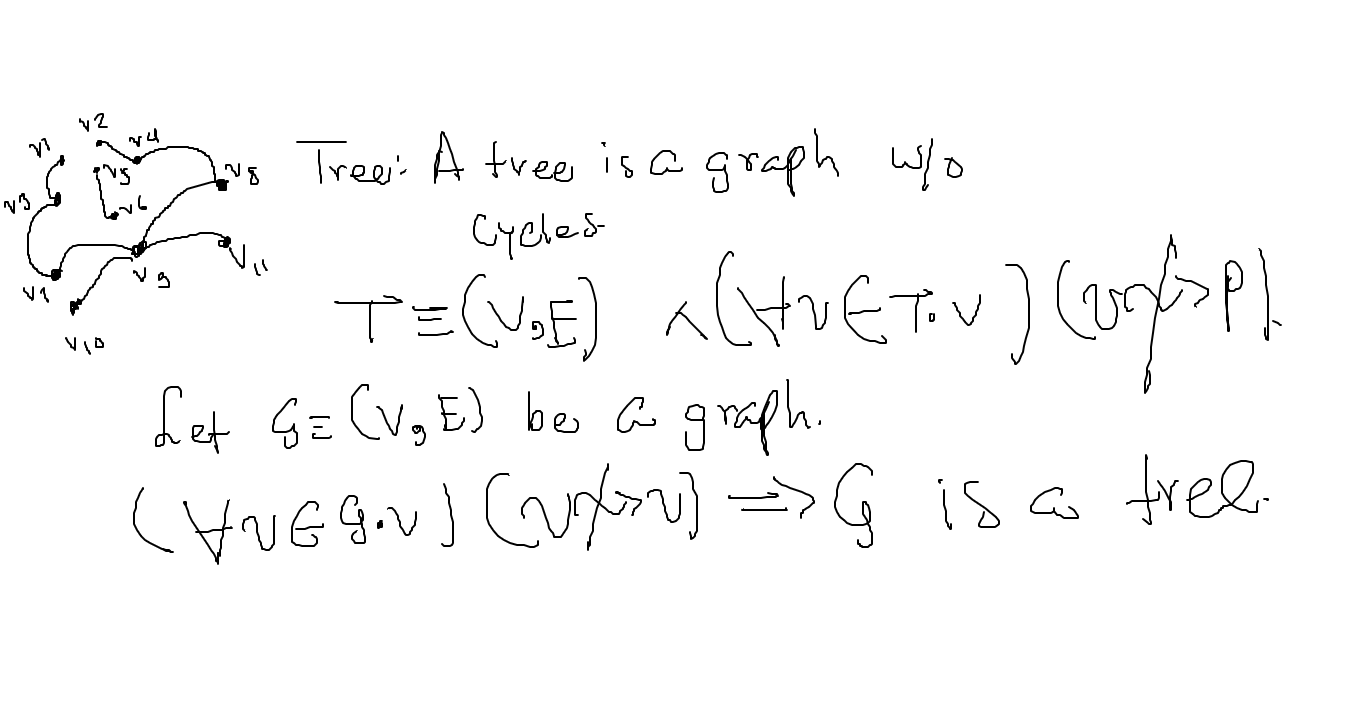 v1 v2 v4
v5 v8
v3 v6
v1 v9 V11
v10
Tree: A tree is a graph w/o
cycles
T ≡ (V, E) ∧ (∀v ∈ T.V) (v ↝̸ P).
Let G ≡ (V, E) be a graph.
(∀v ∈ G.v) (v ↝̸ v) ⇒ G is a tree.